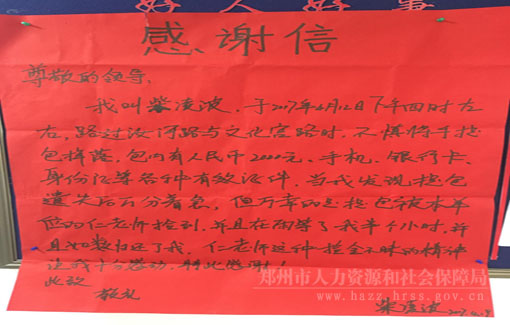 好人好事
感谢信
尊敬的领导:
我叫柴凌波,于2017年4月12日下午四时左
右,路过汝河路与文化宫路时,不慎将手提
包掉落,包内有人民币2000元、手机、银行卡、
身份证等各种有效证件,当我发现提包
遗失后万分着急,但万幸的是提包被本单
位的仁老师捡到,并且在雨等了我半个小时,并
且如数归还了我,仁老师这种拾金不昧的精神
让我十分感动,特此感谢!
此致
敬礼
柴凌波
郑州市人力资源和社会保障局
www.hazz.hrss.gov.cn